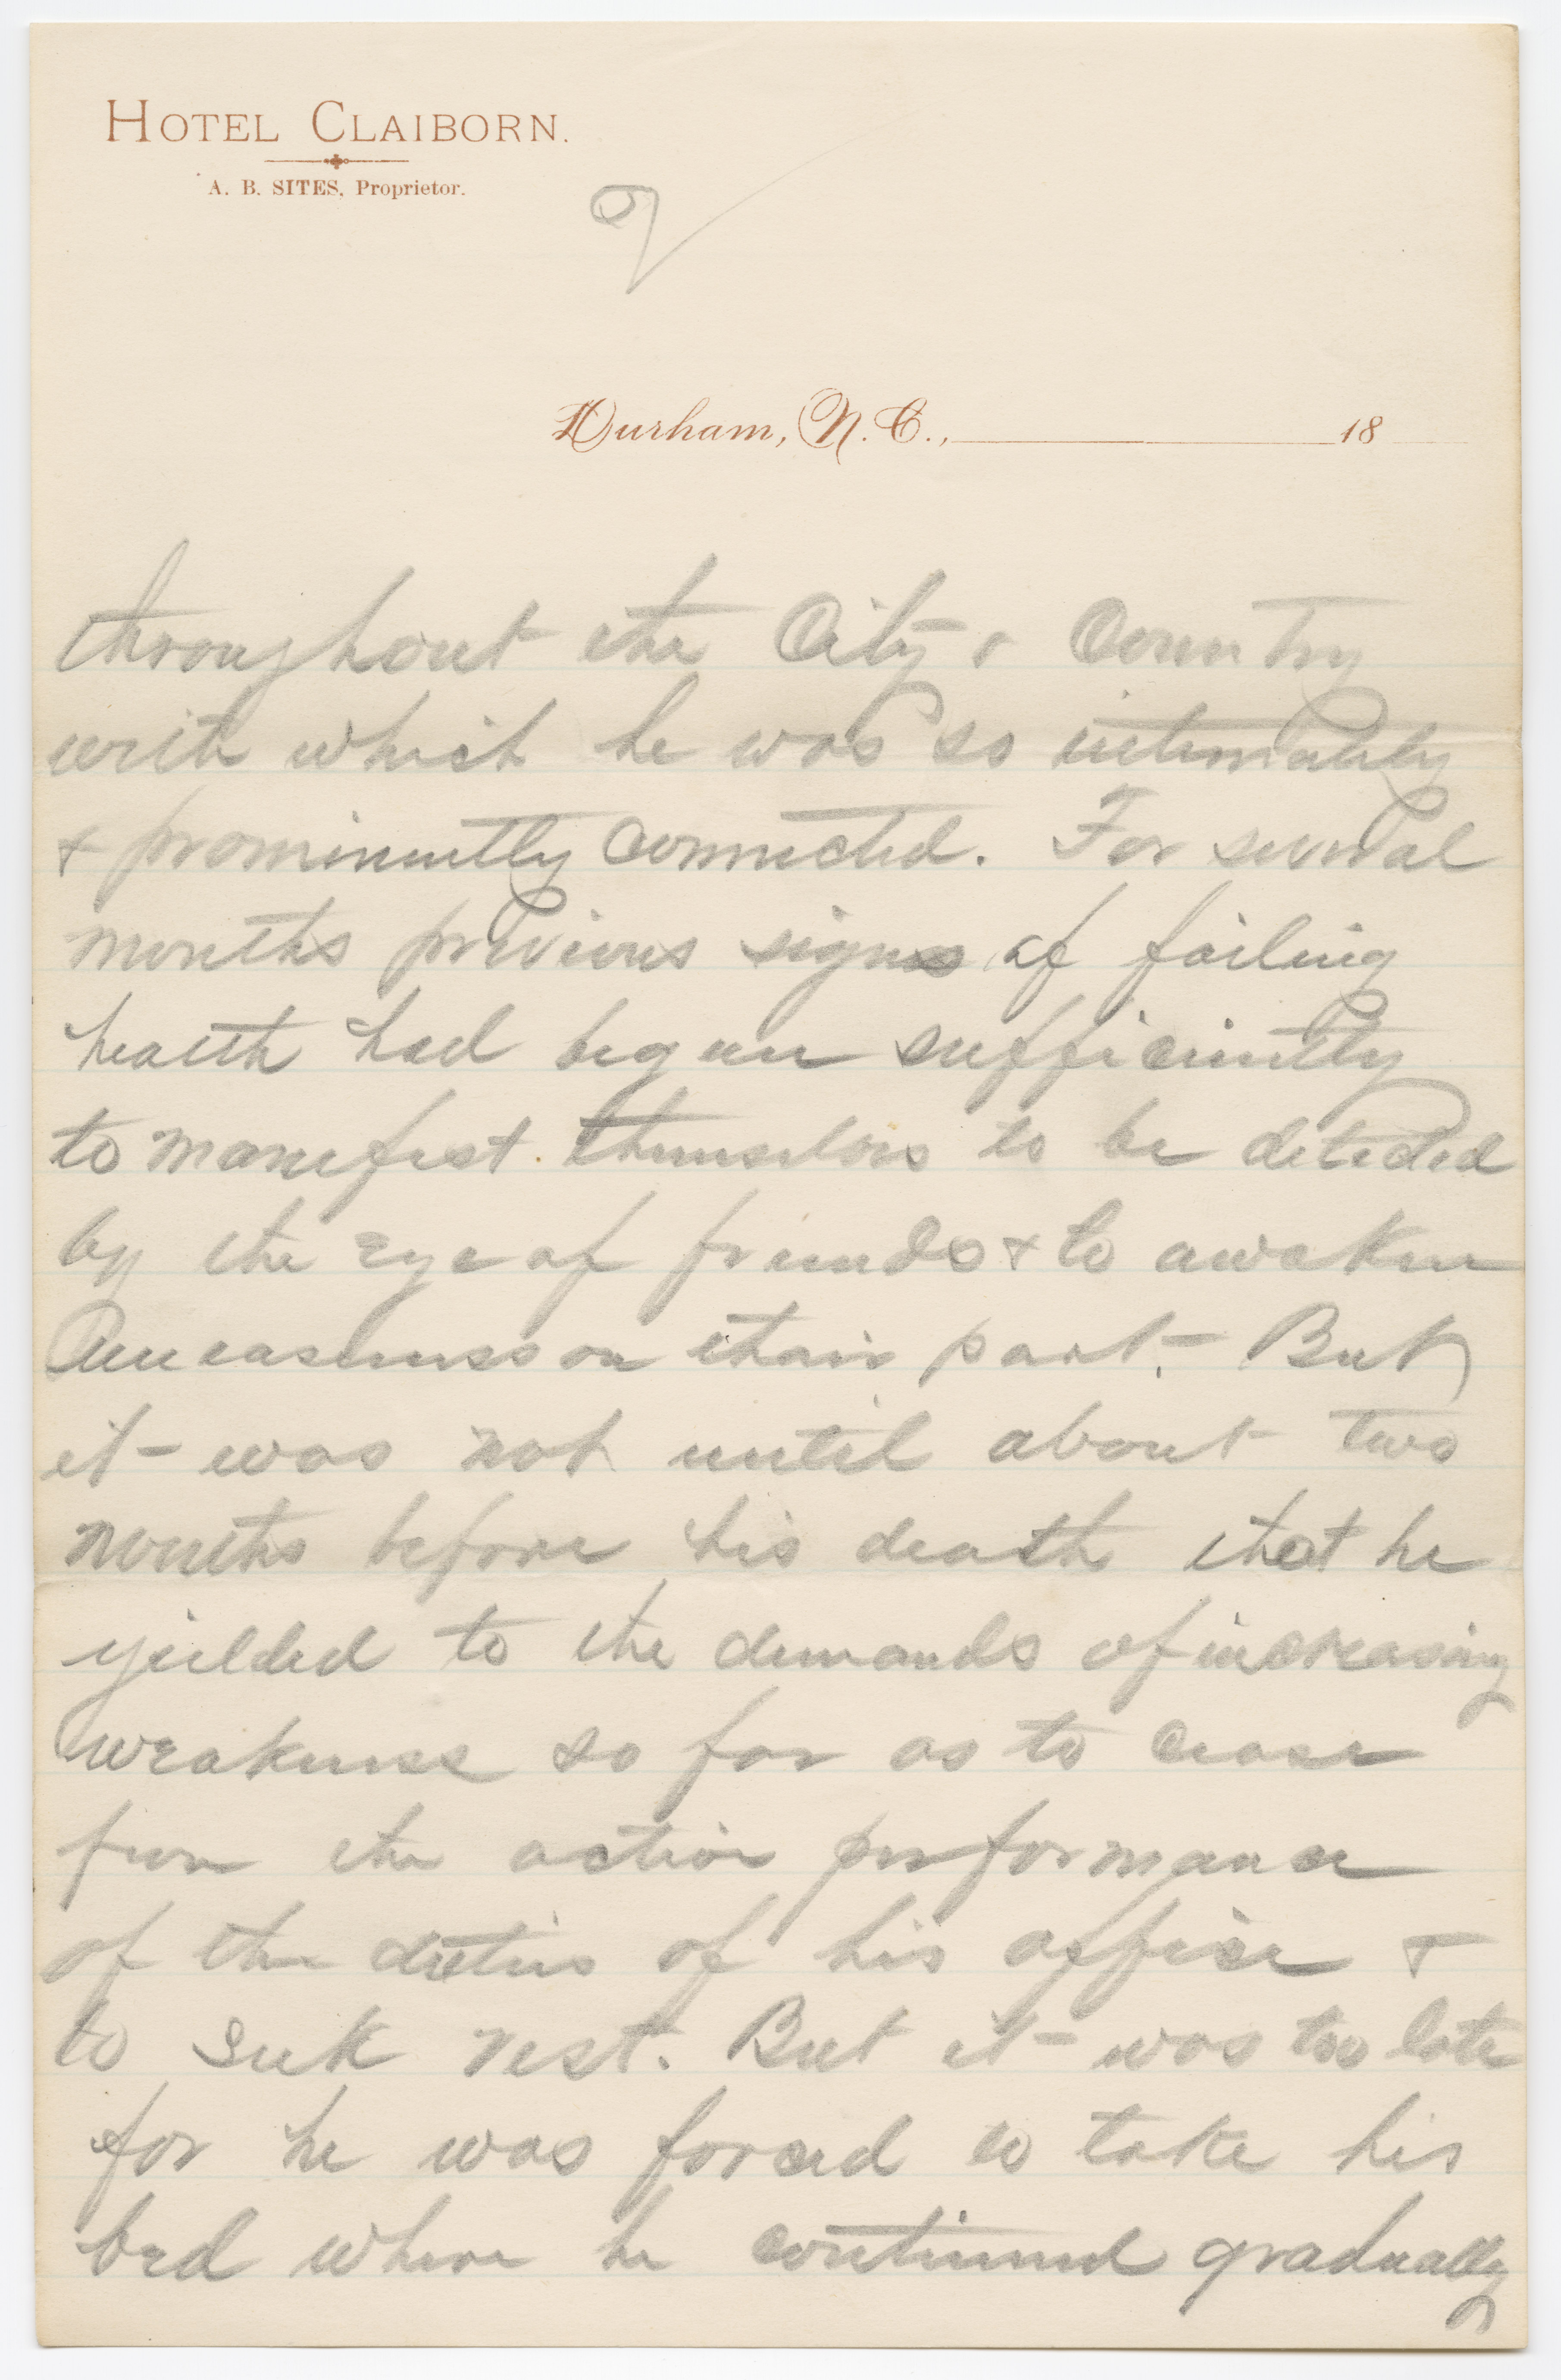 HOTEL CLAIBORN.
A. B. SITES, Proprietor.
Durham, N. C., 18
throughout the City & Country
with which he was so intimately
& prominently connected. For several
months previous signs of failing
health had begun sufficiently
to manifest themselves to be detected
by the eye of friends & to awaken
uneasiness on their part. But
it was not until about two
months before his death that he
yielded to the demands of increasing
weakness so far as to cease
from the active performance
of the duties of his office &
to seek rest. But it was too late
for he was forced to take his
bed where he continued gradually